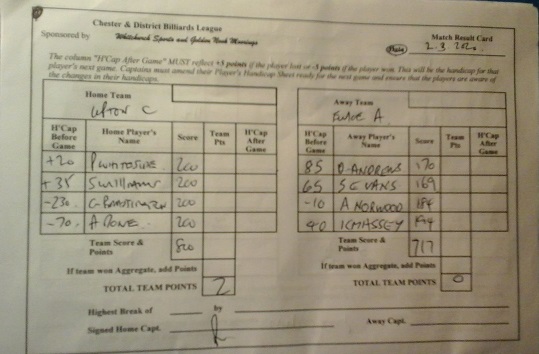 Chester & District Billiards League
Match Result Card
Sponsored by Whitchurch Sports and Golden Nook Moorings
Date
The column "H'Cap After Game" MUST reflect +5 points if the player lost or -5 points if the player won. This will be the handicap for that
player's next game. Captains must amend their Player's Handicap Sheet ready for the next game and ensure that the players are aware of
the changes in their handicaps.
Home Team
UPTON C
H'Cap Before Game Home Player's Name Score Team Pts H'Cap After Game
+20 P WHITOSLIVE 200
+35 S WILLIAMS 200
-230 200
-70 A DONE 200
Team Score & Points 800
If team won Aggregate, add Points
TOTAL TEAM POINTS 2
Away Team
A
H'Cap Before Game Away Player's Name Score Team Pts H'Cap After Game
85 D ANDREWS 170
65 S EVANS 169
-10 A NORWOOD 184
40 K MASSEY 194
Team Score & Points 717
If team won Aggregate, add Points
TOTAL TEAM POINTS 0
Highest Break of by
Signed Home Capt. Away Capt.